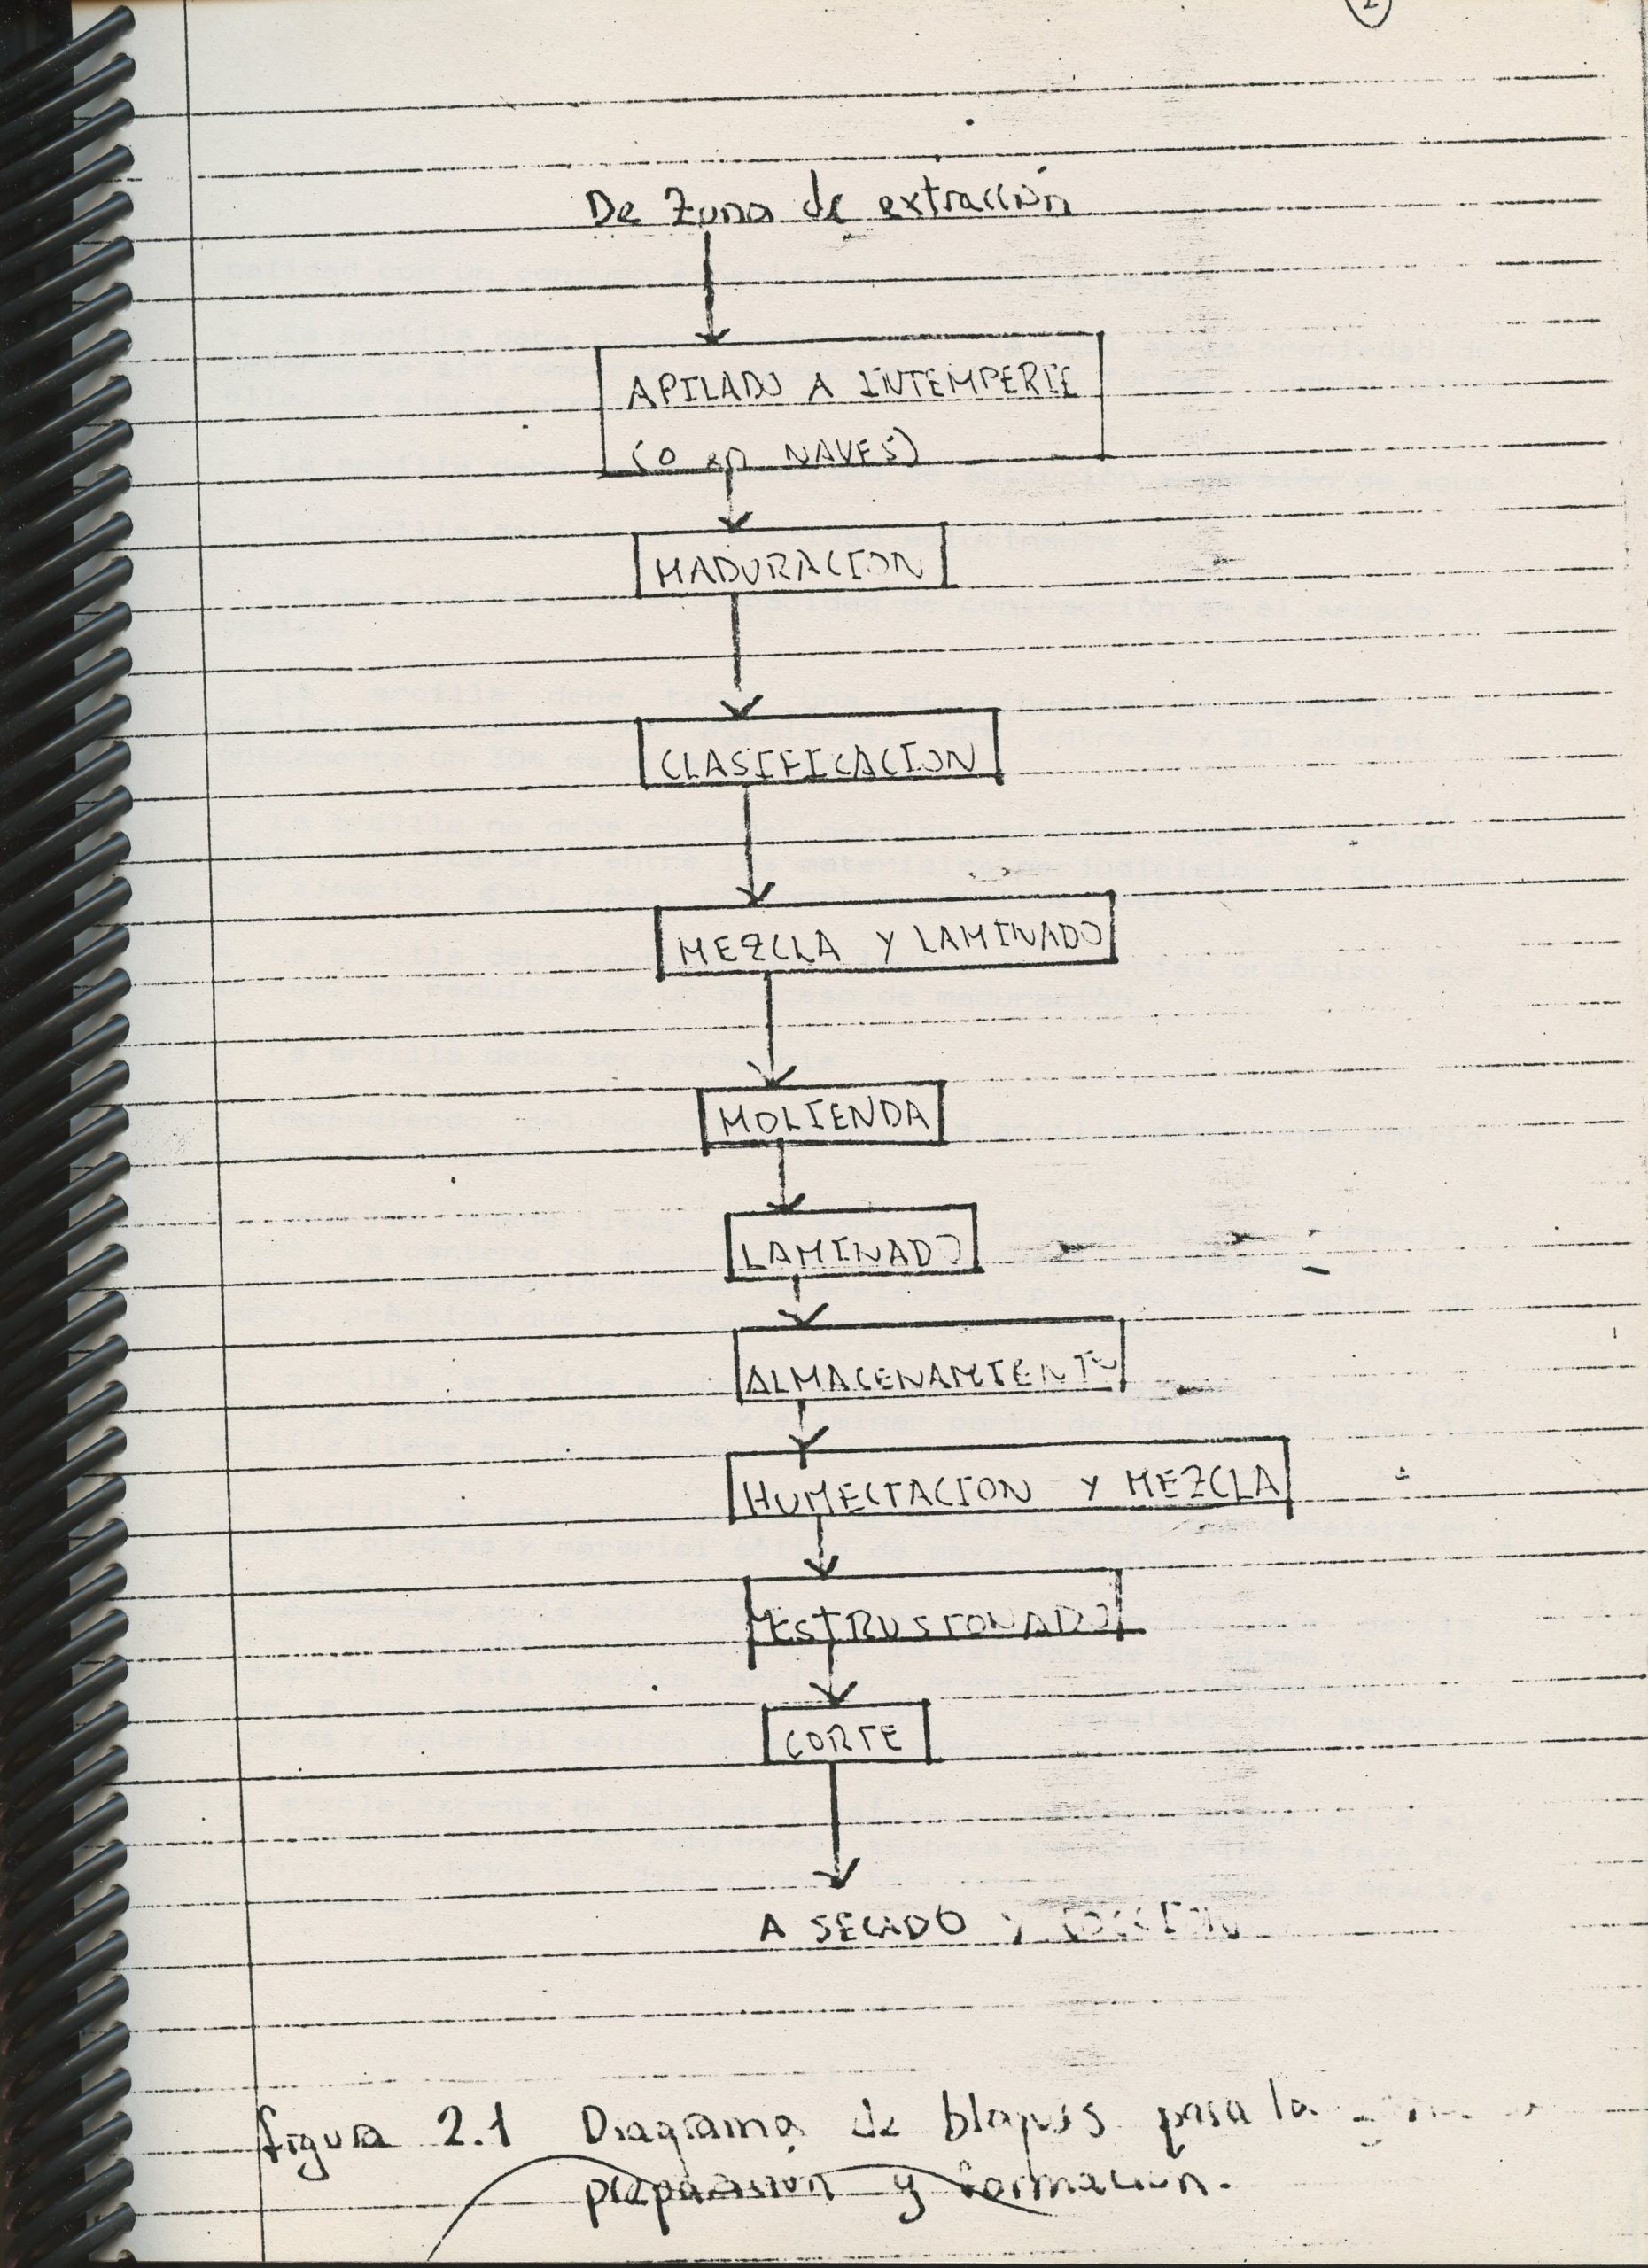 2
De Zona de extracción
APILADO A INTEMPERIE
(O en NAVES)
MADURACION
CLASIFICACION
MEZCLA Y LAMINADO
MOLIENDA
LAMINADO
ALMACENAMIENTO
HUMECTACION Y MEZCLA
ESTRUSIONADO
CORTE
A SECADO Y COCCION
figura 2.1 Diagrama de bloques para la
preparasión y formación.